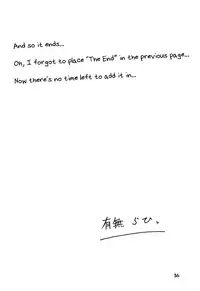 And so it ends...
Oh, I forgot to place "The End" in the previous page...
Now there's no time left to add it in...
有無らひ。
36